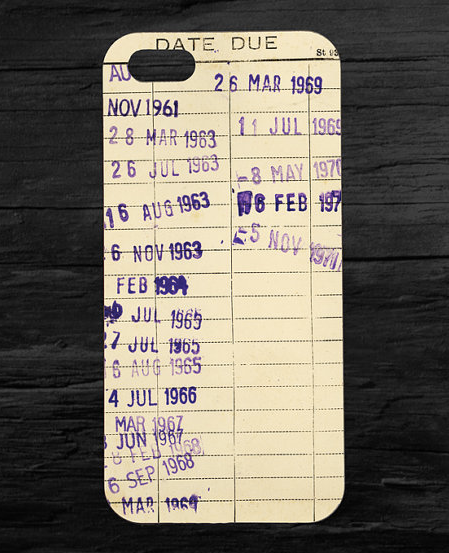 DATE DUE
St 93
AU
NOV 1961
28 MAR 1963
26 JUL 1963
16 AUG 1963
6 NOV 1963
FEB 1964
JUL 1965
27 JUL 1965
6 AUG 1965
4 JUL 1966
MAR 1967
JUN 1967
8 FEB 1968
6 SEP 1968
MAR 1969
26 MAR 1969
11 JUL 1969
-8 MAY 1970
6 FEB 197
-5 NOV